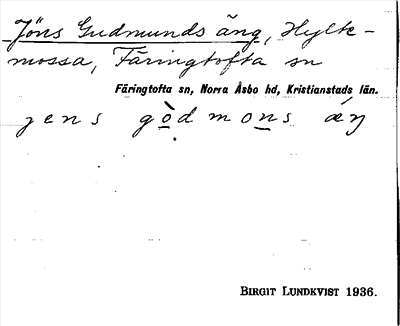 Jöns Gudmunds äng, Hylte-
mossa, Färingtofta sn
Färingtofta sn, Norra Åsbo hd, Kristianstads län.
jens gòdmons ǽŋ
BIRGIT LUNDKVIST 1936.